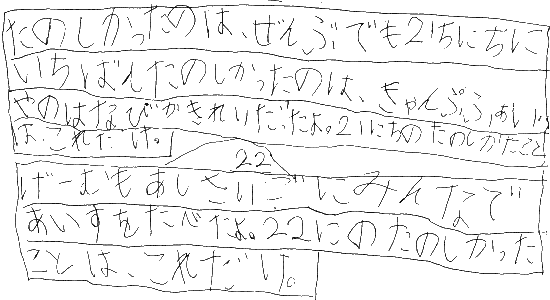 たのしかったのは、ぜんぶでも21ちにちに
いちばんたのしかったのは、きゃんぷふぁいい
やのはなびがきれいだったよ。21にちのたのしかたこと
は、これだけ。
22
げーむもあしさいごにみんなで
あいすをたべたよ。22にのたのしかった
ことは、これだけ。